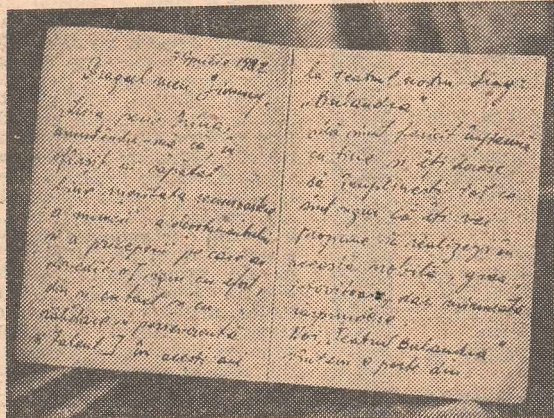 7 Aprilie 1982
Dragul meu Jimmy,
amintindu-mă că în
sfîrșit, ai căpătat
bine meritata recunoaștere
a muncii, a devotamentului
și a priceperii pe care ai
cu efort,
și cu
răbdare și perseverență
și talent] în acești ani
la teatrul nostru drag:
„Bulandra”
mă simt fericit împreună
cu tine și îți doresc
să împlinești tot ce
sînt sigur că îți vei
propune să realizezi în
această nobilă, grea,
dar minunată
răspundere.
„Teatrul Bulandra”
sîntem o parte din